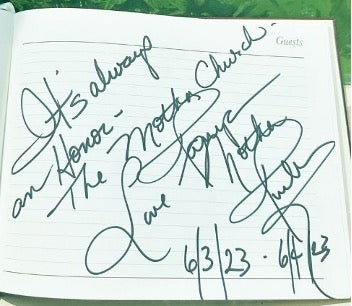 Guests
It's always
an Honor -
The Mother Church.
Love
6/3/23 - 6/4/23